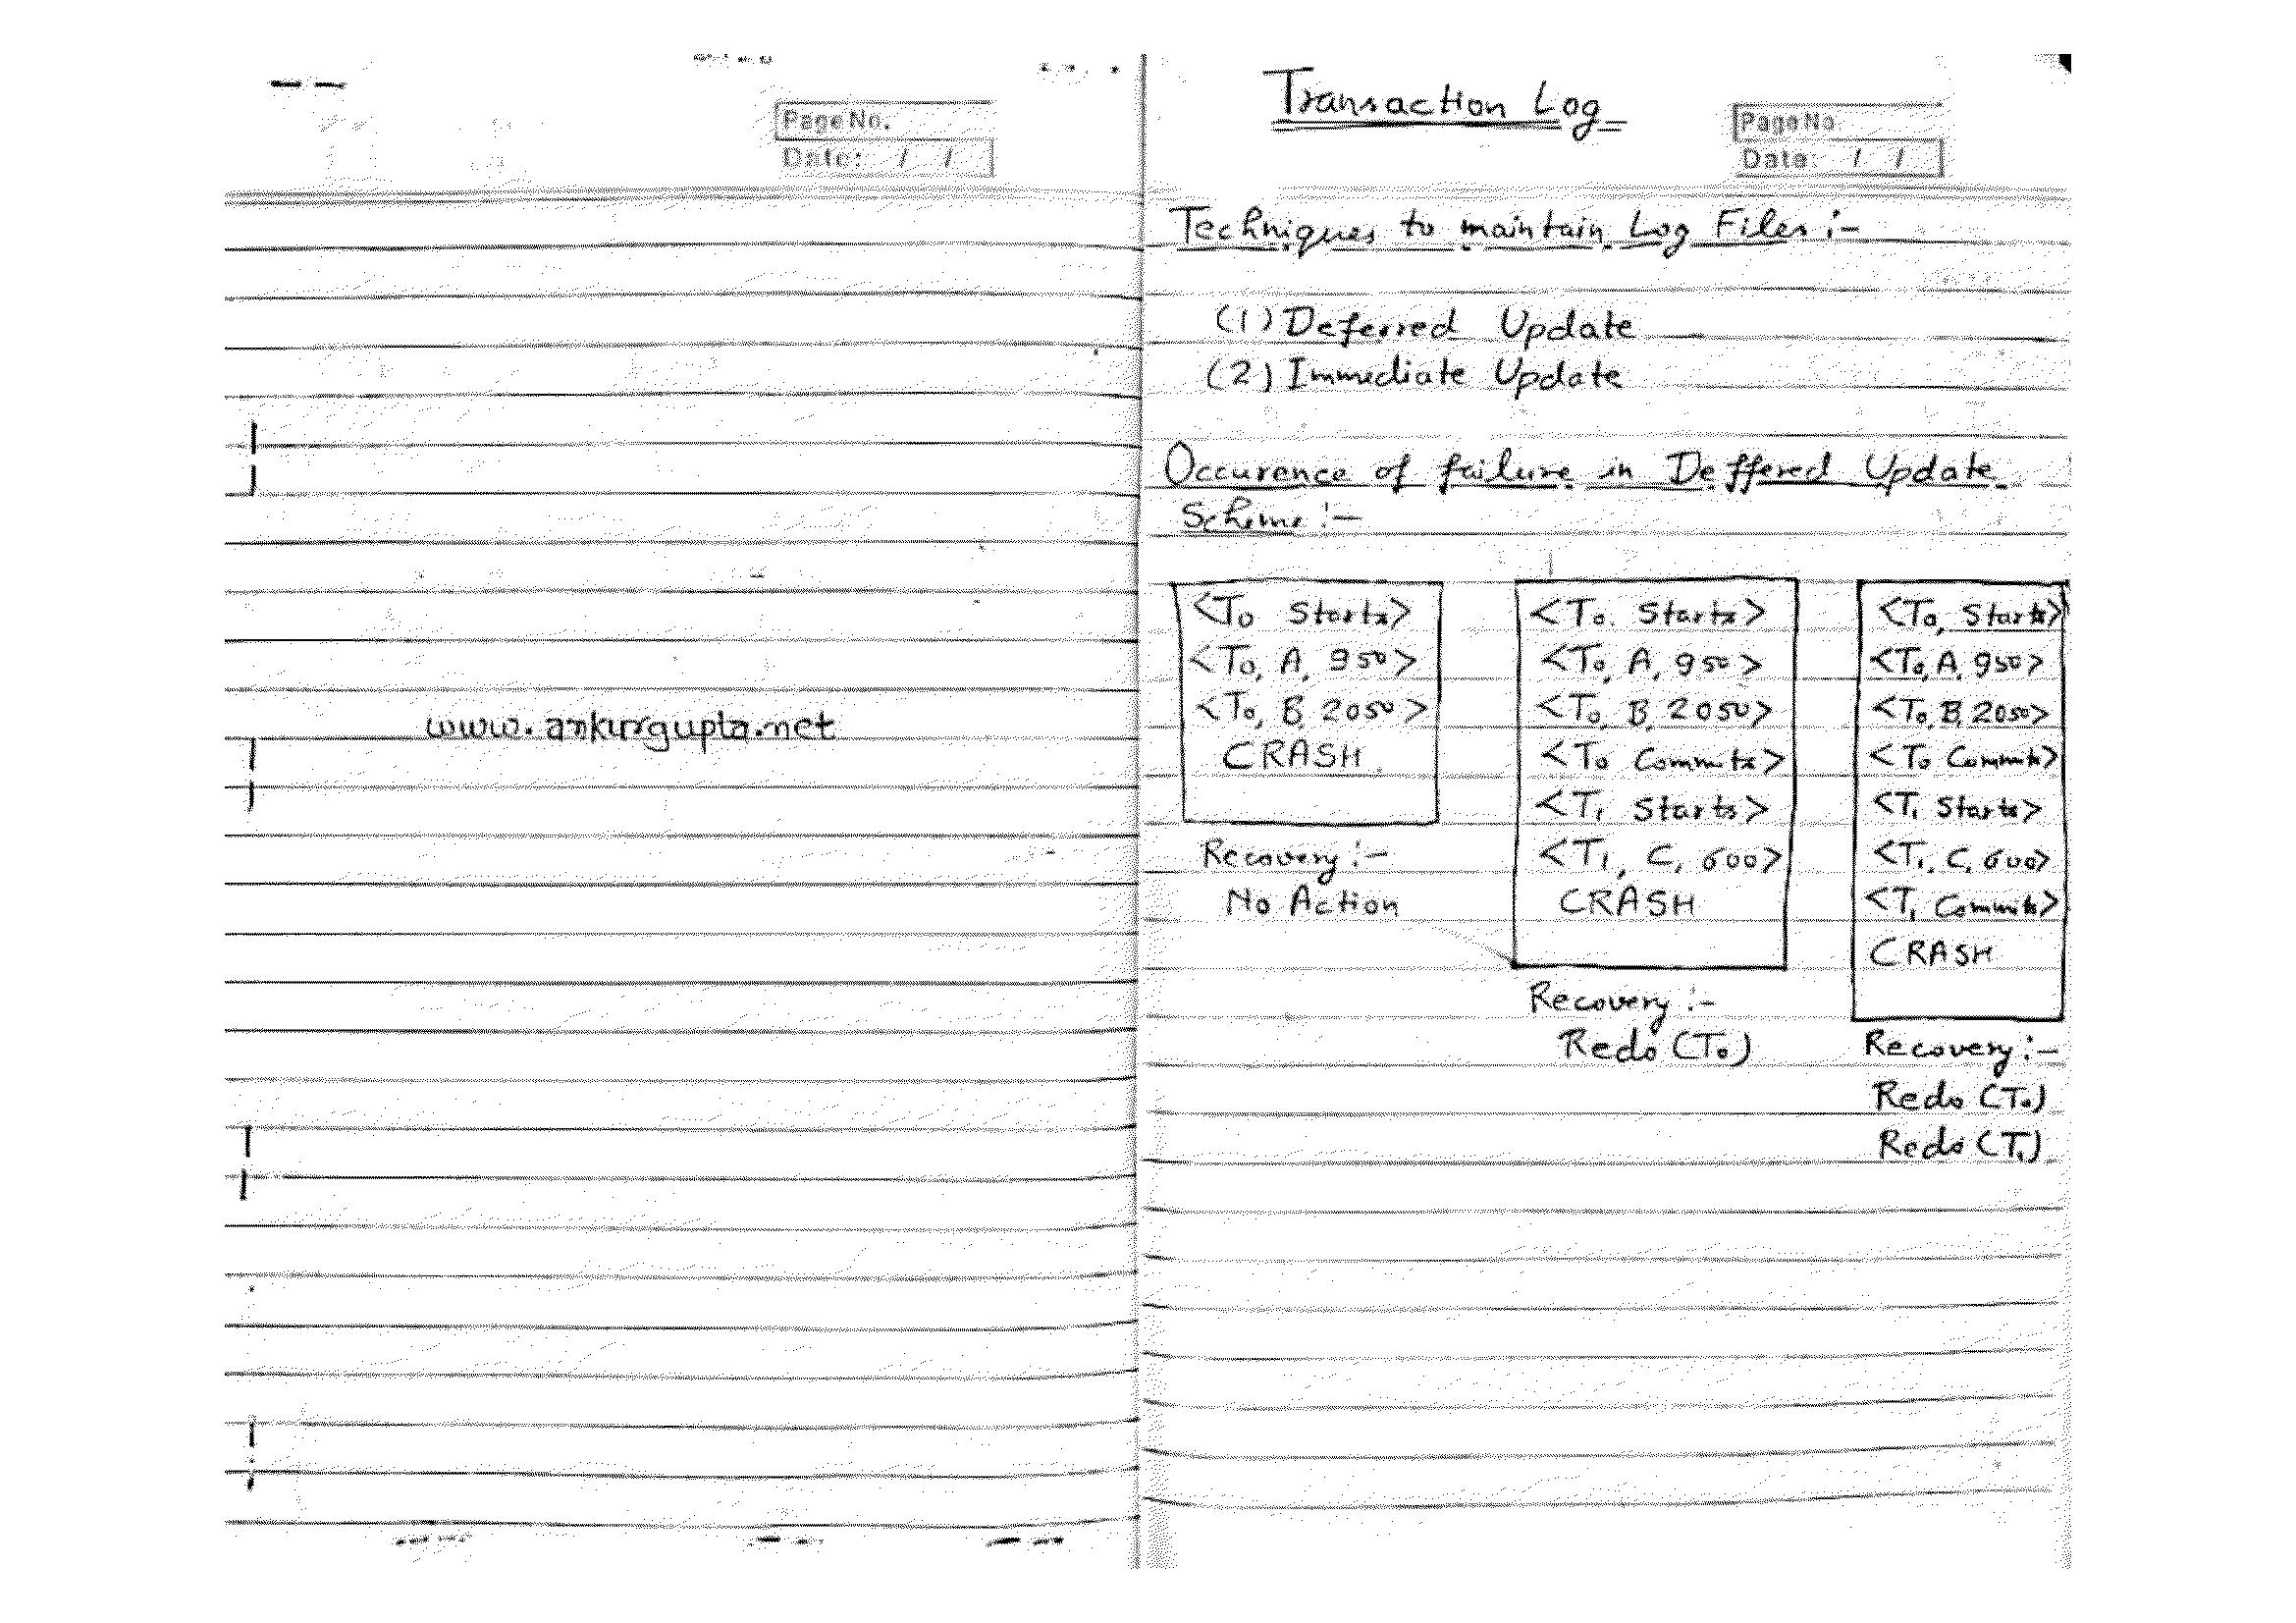 Page No.
Date: / /
www.ankurgupta.net
Transaction Log
Page No.
Date: / /
Techniques to maintain Log Files :-
(1) Deferred Update
(2) Immediate Update
Occurence of failure in Deffered Update
Scheme :-
<T0 Starts>
<T0, A, 950>
<T0, B, 2050>
CRASH
Recovery :-
No Action
<T0 Starts>
<T0, A, 950>
<T0, B, 2050>
<T0 Commits>
<T1 Starts>
<T1, C, 600>
CRASH
Recovery :-
Redo (T0)
<T0, Starts>
<T0, A, 950>
<T0, B, 2050>
<T0 Commits>
<T1 Starts>
<T1, C, 600>
<T1 Commits>
CRASH
Recovery :-
Redo (T0)
Redo (T1)